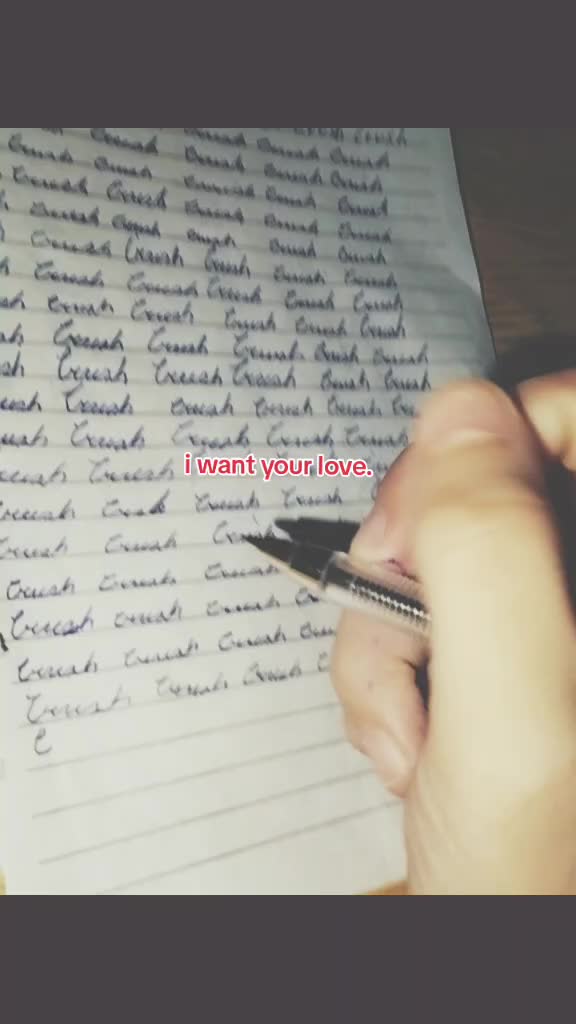 Crush Crush
Crush Crush Crush Crush Crush
Crush Crush Crush Crush Crush
Crush Crush Crush Crush Crush
Crush Crush Crush Crush Crush
Crush Crush Crush Crush Crush
Crush Crush Crush Crush Crush
Crush Crush Crush Crush Crush
Crush Crush Crush Crush Crush
Crush Crush Crush Crush
Crush Crush Crush Crush
Crush
i want your love.
Crush Crush Crush Crush
Crush Crush
Crush Crush Crush
Crush Crush Crush
Crush Crush Crush
Crush Crush Crush
C